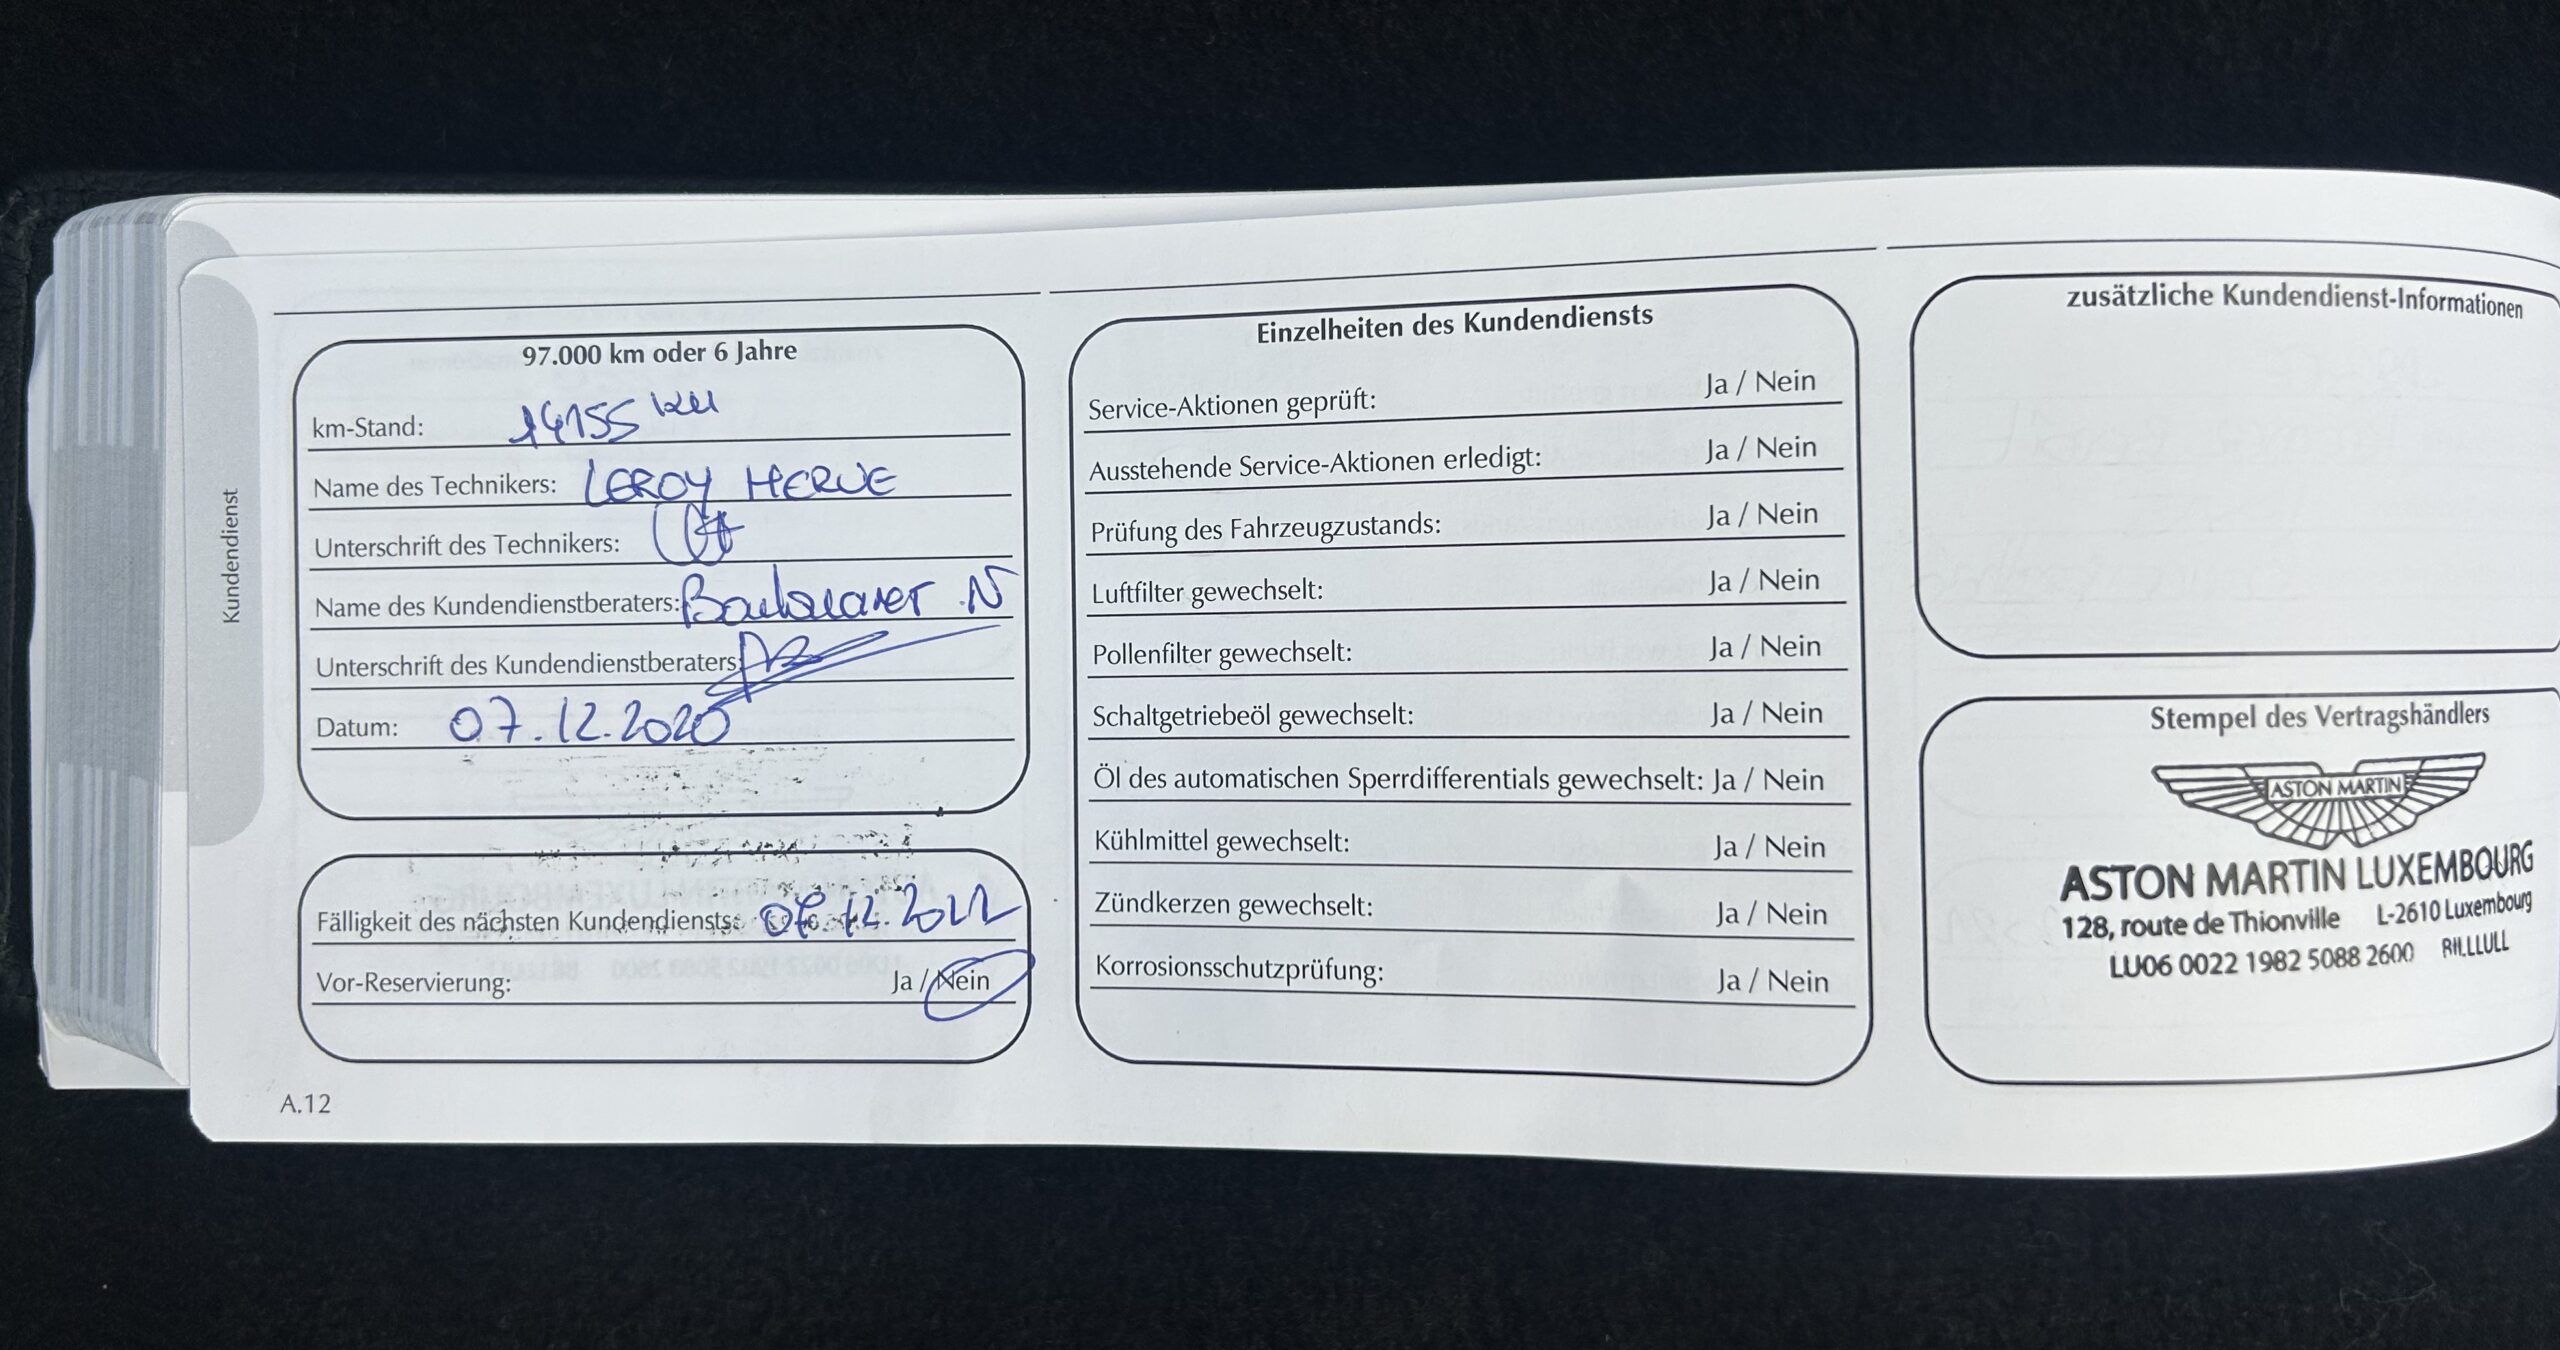 Kundendienst
97.000 km oder 6 Jahre
km-Stand: 14155 km
Name des Technikers: LEROY HERVE
Unterschrift des Technikers:
Name des Kundendienstberaters: N
Unterschrift des Kundendienstberaters:
Datum: 07.12.2020
Fälligkeit des nächsten Kundendiensts: 07.12.2022
Vor-Reservierung: Ja / Nein
A.12
Einzelheiten des Kundendiensts
Service-Aktionen geprüft: Ja / Nein
Ausstehende Service-Aktionen erledigt: Ja / Nein
Prüfung des Fahrzeugzustands: Ja / Nein
Luftfilter gewechselt: Ja / Nein
Pollenfilter gewechselt: Ja / Nein
Schaltgetriebeöl gewechselt: Ja / Nein
Öl des automatischen Sperrdifferentials gewechselt: Ja / Nein
Kühlmittel gewechselt: Ja / Nein
Zündkerzen gewechselt: Ja / Nein
Korrosionsschutzprüfung: Ja / Nein
zusätzliche Kundendienst-Informationen
Stempel des Vertragshändlers
ASTON MARTIN
ASTON MARTIN LUXEMBOURG
128, route de Thionville L-2610 Luxembourg
LU06 0022 1982 5088 2600 BILLLULL